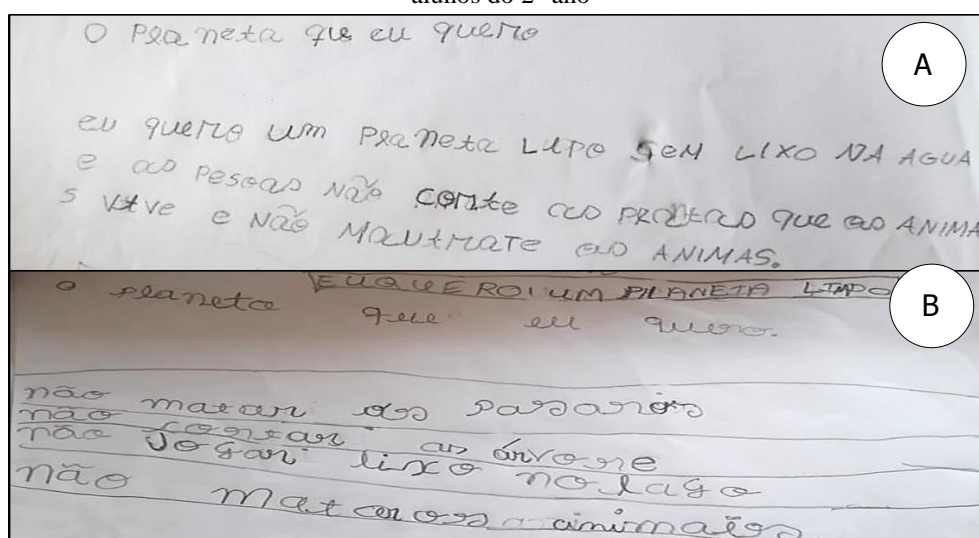 alunos do 2º ano
O Planeta que eu quero
A
eu quero um Planeta LIPO SEM LIXO NA AGUA
e as pesoas não conte as prantas que as ANIMA
s vive e Não Mautrate as ANIMAS.
EU QUERO UM PLANETA LIMPO
B
o planeta que eu quero.
não matar os pasaros
não cortar as árvore
não Jogar lixo no lago
não matar os animais